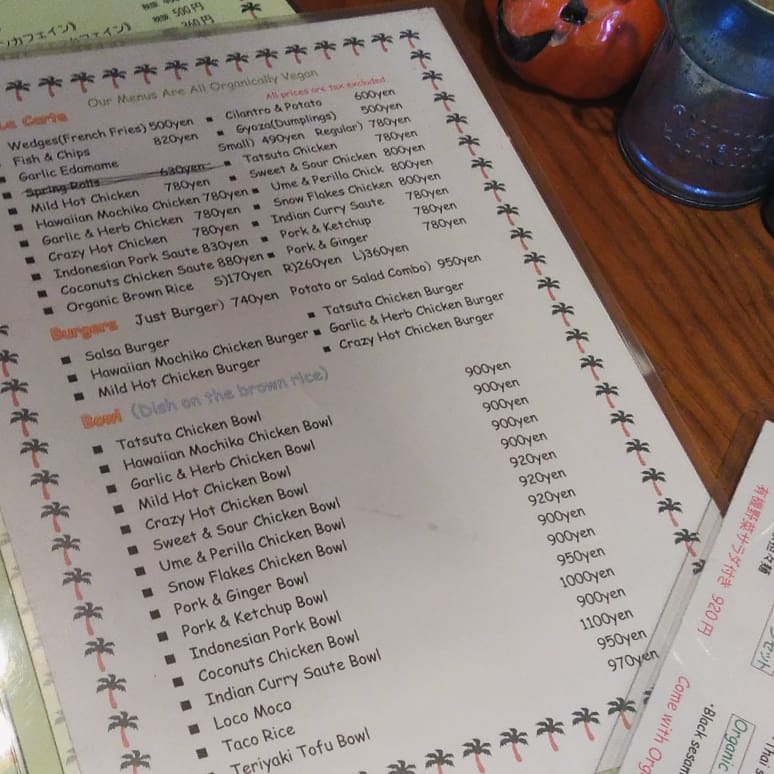 ンカフェイン》
500円
360円
Our Menus Are All Organically Vegan
La Carte
All prices are tax excluded.
Wedges(French Fries) 500yen
Fish & Chips 820yen
Garlic Edamame
Spring Rolls 630yen
Mild Hot Chicken 780yen
Hawaiian Mochiko Chicken 780yen
Garlic & Herb Chicken 780yen
Crazy Hot Chicken 780yen
Indonesian Pork Saute 830yen
Coconuts Chicken Saute 880yen
Organic Brown Rice S)170yen R)260yen L)360yen
Cilantro & Potato 600yen
Gyoza(Dumplings) 500yen
Small) 490yen Regular) 780yen
Tatsuta Chicken 780yen
Sweet & Sour Chicken 800yen
Ume & Perilla Chick 800yen
Snow Flakes Chicken 800yen
Indian Curry Saute 780yen
Pork & Ketchup 780yen
Pork & Ginger 780yen
Burgers Just Burger) 740yen Potato or Salad Combo) 950yen
Salsa Burger
Hawaiian Mochiko Chicken Burger
Mild Hot Chicken Burger
Tatsuta Chicken Burger
Garlic & Herb Chicken Burger
Crazy Hot Chicken Burger
Bowl (Dish on the brown rice)
Tatsuta Chicken Bowl 900yen
Hawaiian Mochiko Chicken Bowl 900yen
Garlic & Herb Chicken Bowl 900yen
Mild Hot Chicken Bowl 900yen
Crazy Hot Chicken Bowl 900yen
Sweet & Sour Chicken Bowl 920yen
Ume & Perilla Chicken Bowl 920yen
Snow Flakes Chicken Bowl 920yen
Pork & Ginger Bowl 900yen
Pork & Ketchup Bowl 900yen
Indonesian Pork Bowl 950yen
Coconuts Chicken Bowl 1000yen
Indian Curry Saute Bowl 900yen
Loco Moco 1100yen
Taco Rice 950yen
Teriyaki Tofu Bowl 970yen
有機野菜サラダ付き 920円
セット
Come with Org
Organic
・Black sesam